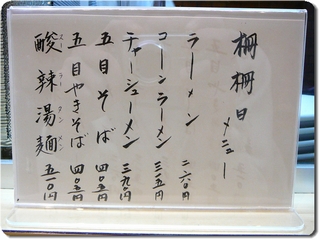 栅栅日 メニュー
ラーメン 二六〇円
コーンラーメン 三一五円
チャーシューメン 三九〇円
五目そば 四〇五円
五目やきそば 四〇五円
酸辣湯麺 五一〇円
スーラータンメン